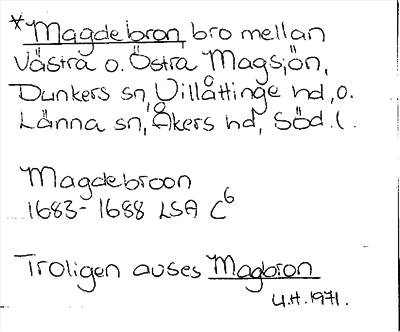 *Magdebron, bro mellan
Västra o. Östra Magsjön,
Dunkers sn, Villåttinge hd, o.
Länna sn, Åkers hd, Söd. l.
Magdebroon
1683-1688 LSA C6
Troligen avses Magbron
U.H. 1971.